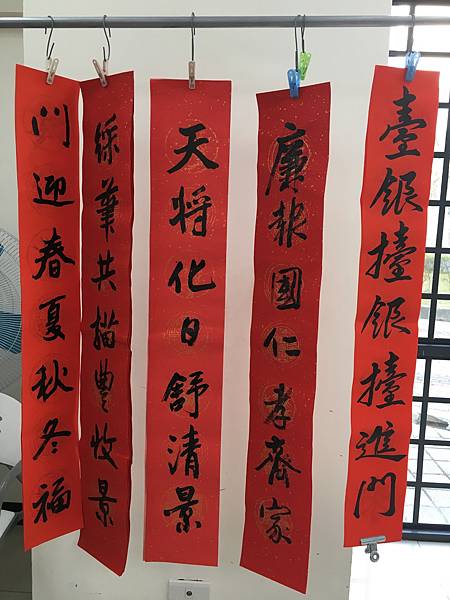 臺銀擡銀擡進門
廉報國仁孝齊家
天将化日舒清景
綵筆共描豊收景
門迎春夏秋冬福